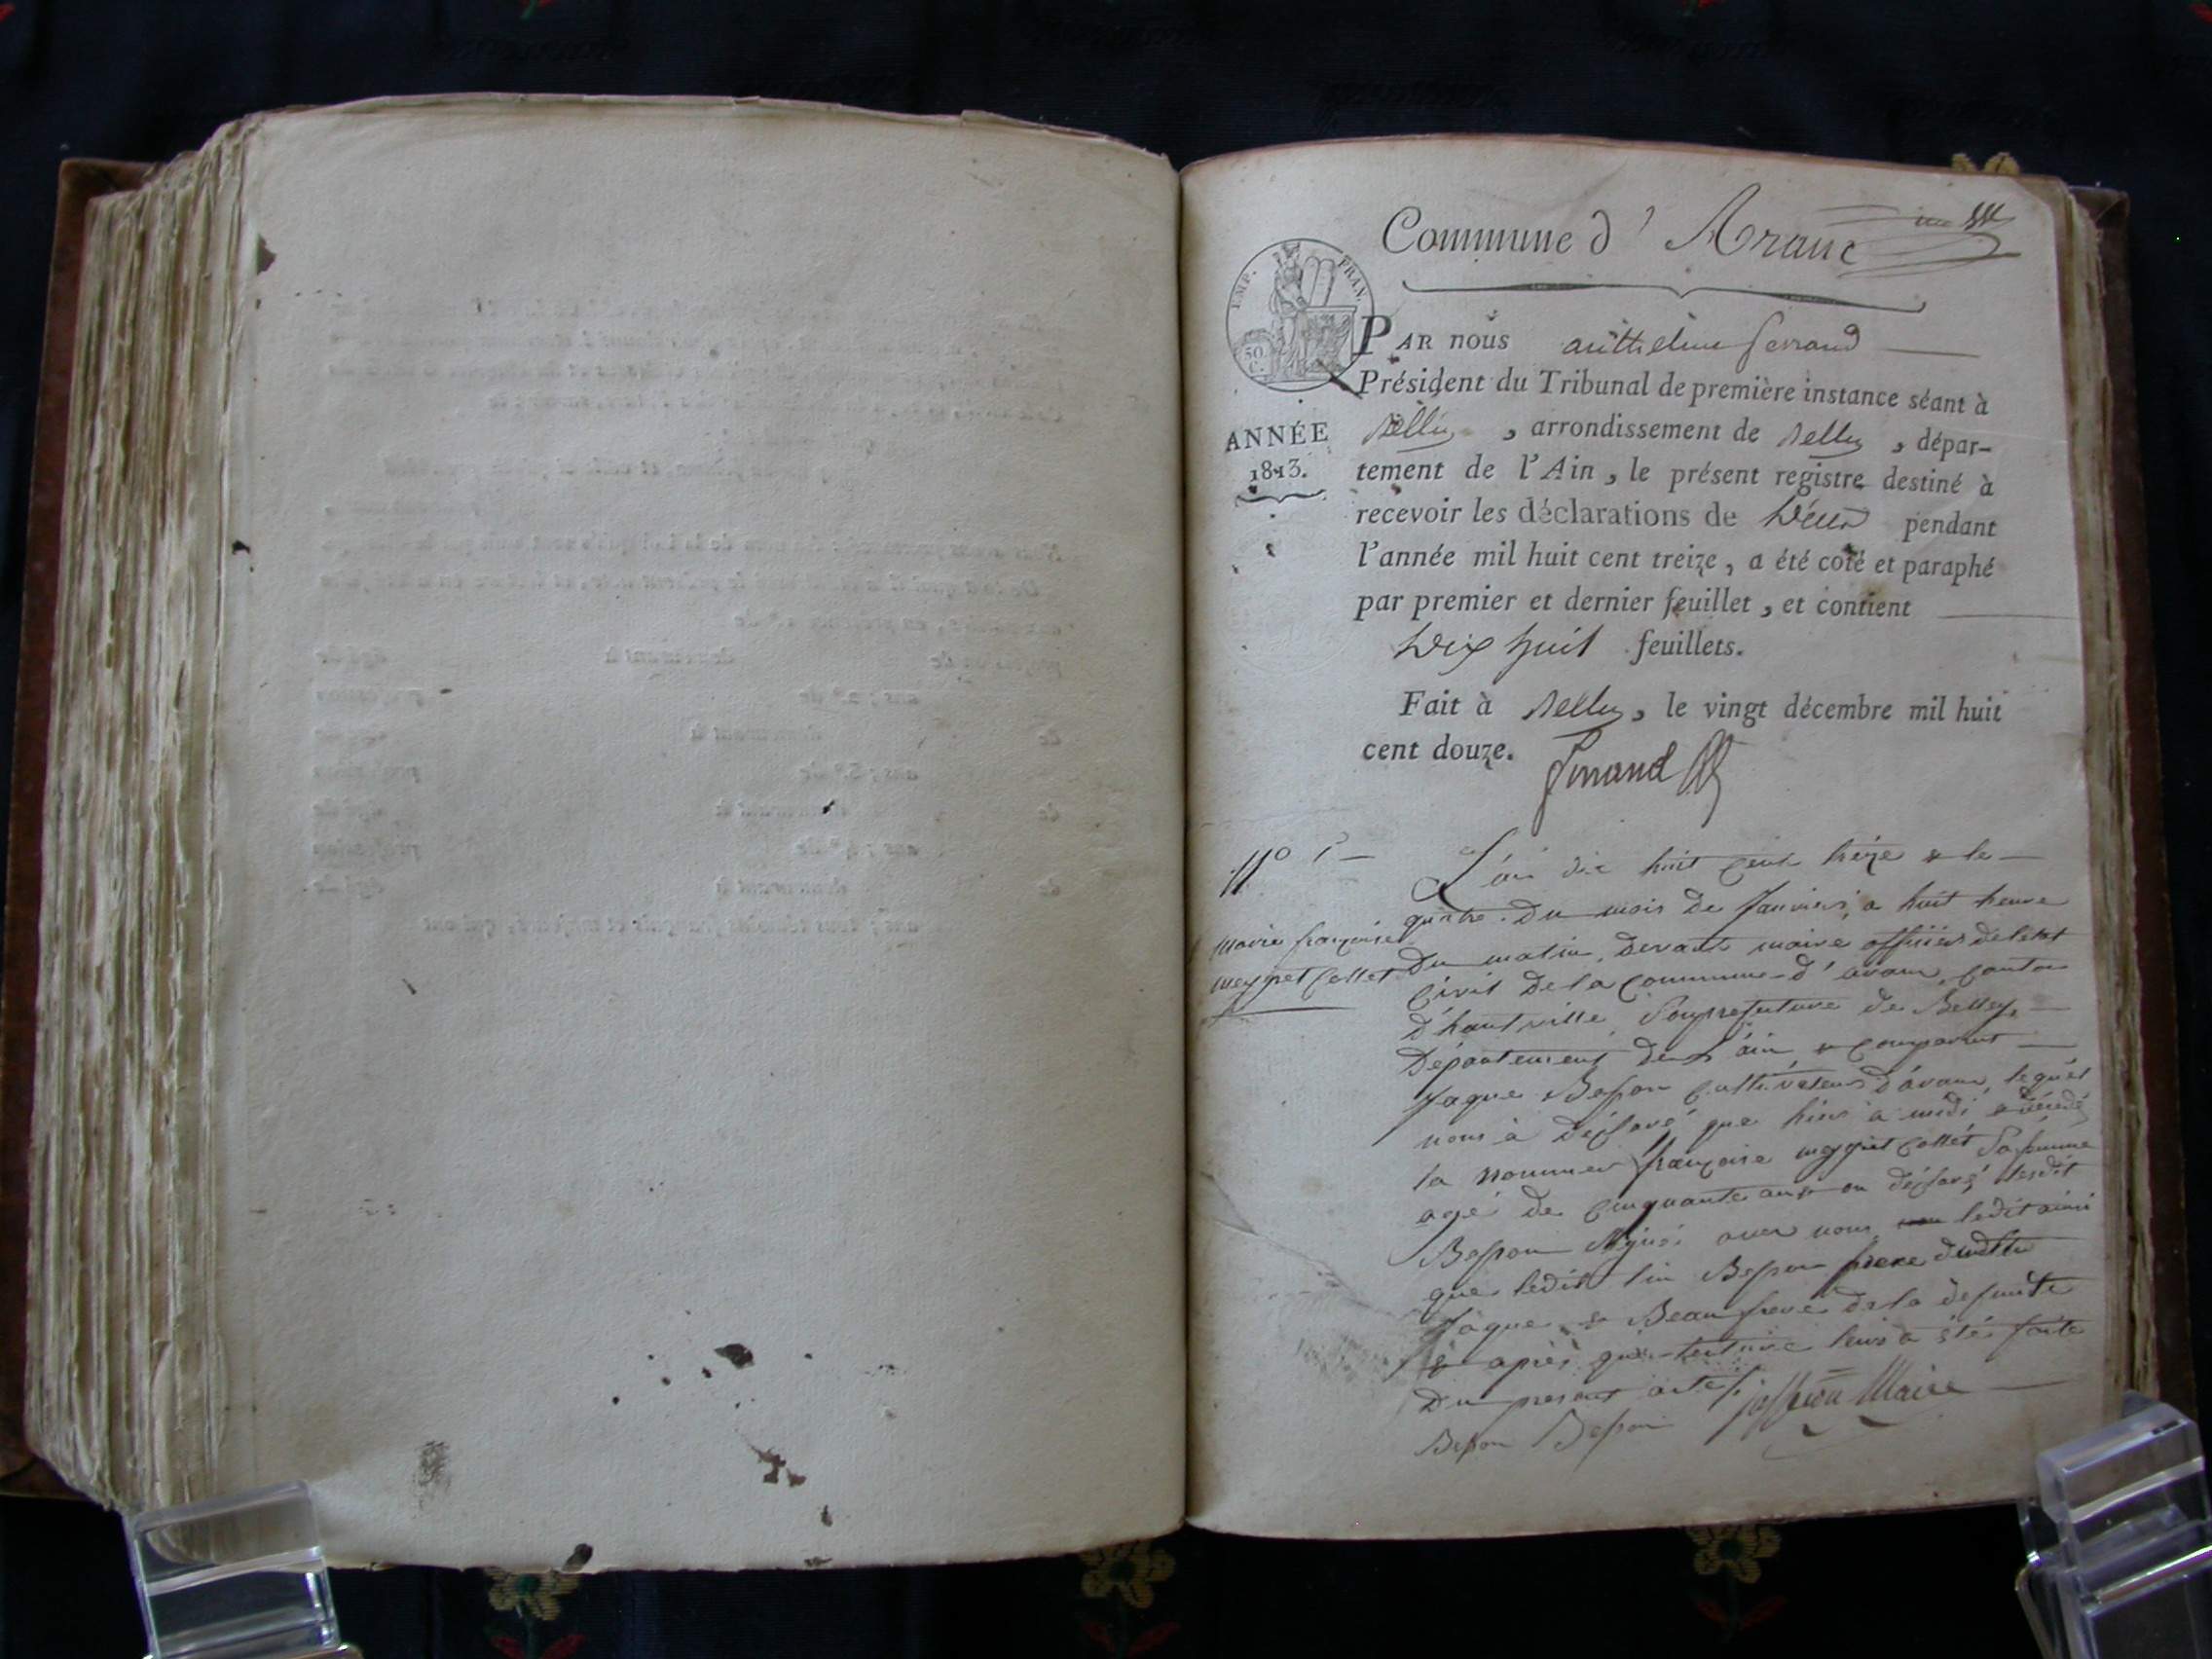 Commune d'Aranc
EMP. FRAN.
50
C.
PAR nous anthelme ferrand
Président du Tribunal de première instance séant à
Belley, arrondissement de Belley, dépar-
ANNÉE
1813.
tement de l'Ain, le présent registre destiné à
recevoir les déclarations de Décès pendant
l'année mil huit cent treize, a été coté et paraphé
par premier et dernier feuillet, et contient
Dix huit feuillets.
Fait à Belley, le vingt décembre mil huit
cent douze.
ferrand
N° 1er
L'an dix huit cent treize & le
quatre du mois de Janvier, a huit heure
marie françoise
meygret Collet
du matin, devant maire officier de létat
Civil de la Commune d'aranc, Canton
d'hautville, Souprefecture de Belley,
Département de L'ain, & Comparut
Jaque Besson Cultivateur d'aranc, lequel
nous à déclaré que hier à midi & décédé
la nommée françoise meygret Collet Safemme
agé de Cinquante ans on déclaré lesdit
Besson Signé avec nous ledit ainsi
que ledit Besson frere dudit
Jaque & Beaufrere de la defunte
& après que lecture leur à été faite
Du present acte
Besson Besson Maire